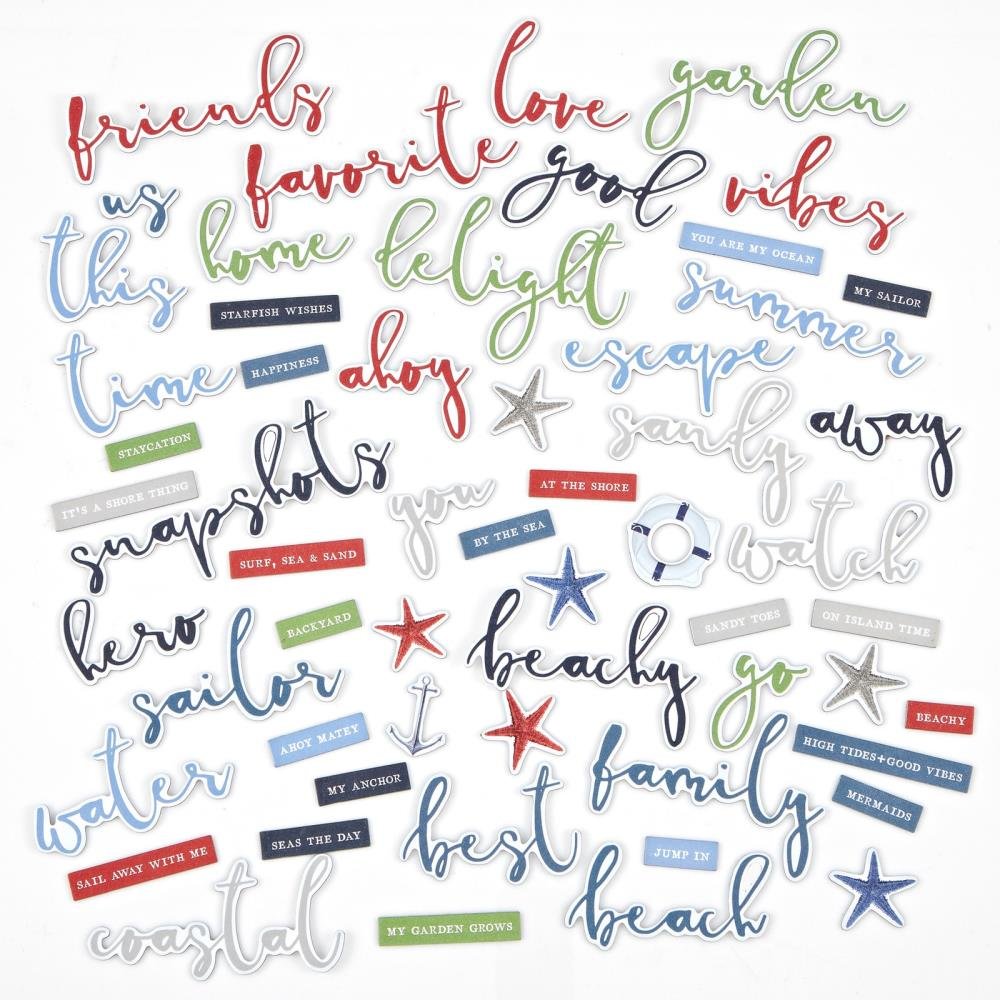 friends
love
garden
favorite
good
vibes
us
this
home
delight
YOU ARE MY OCEAN
MY SAILOR
STARFISH WISHES
summer
time
HAPPINESS
ahoy
escape
sandy
away
STAYCATION
IT'S A SHORE THING
snapshots
you
AT THE SHORE
BY THE SEA
watch
SURF, SEA & SAND
hero
BACKYARD
beachy
SANDY TOES
ON ISLAND TIME
sailor
go
BEACHY
AHOY MATEY
HIGH TIDES+GOOD VIBES
water
MY ANCHOR
family
MERMAIDS
SAIL AWAY WITH ME
SEAS THE DAY
best
JUMP IN
beach
coastal
MY GARDEN GROWS